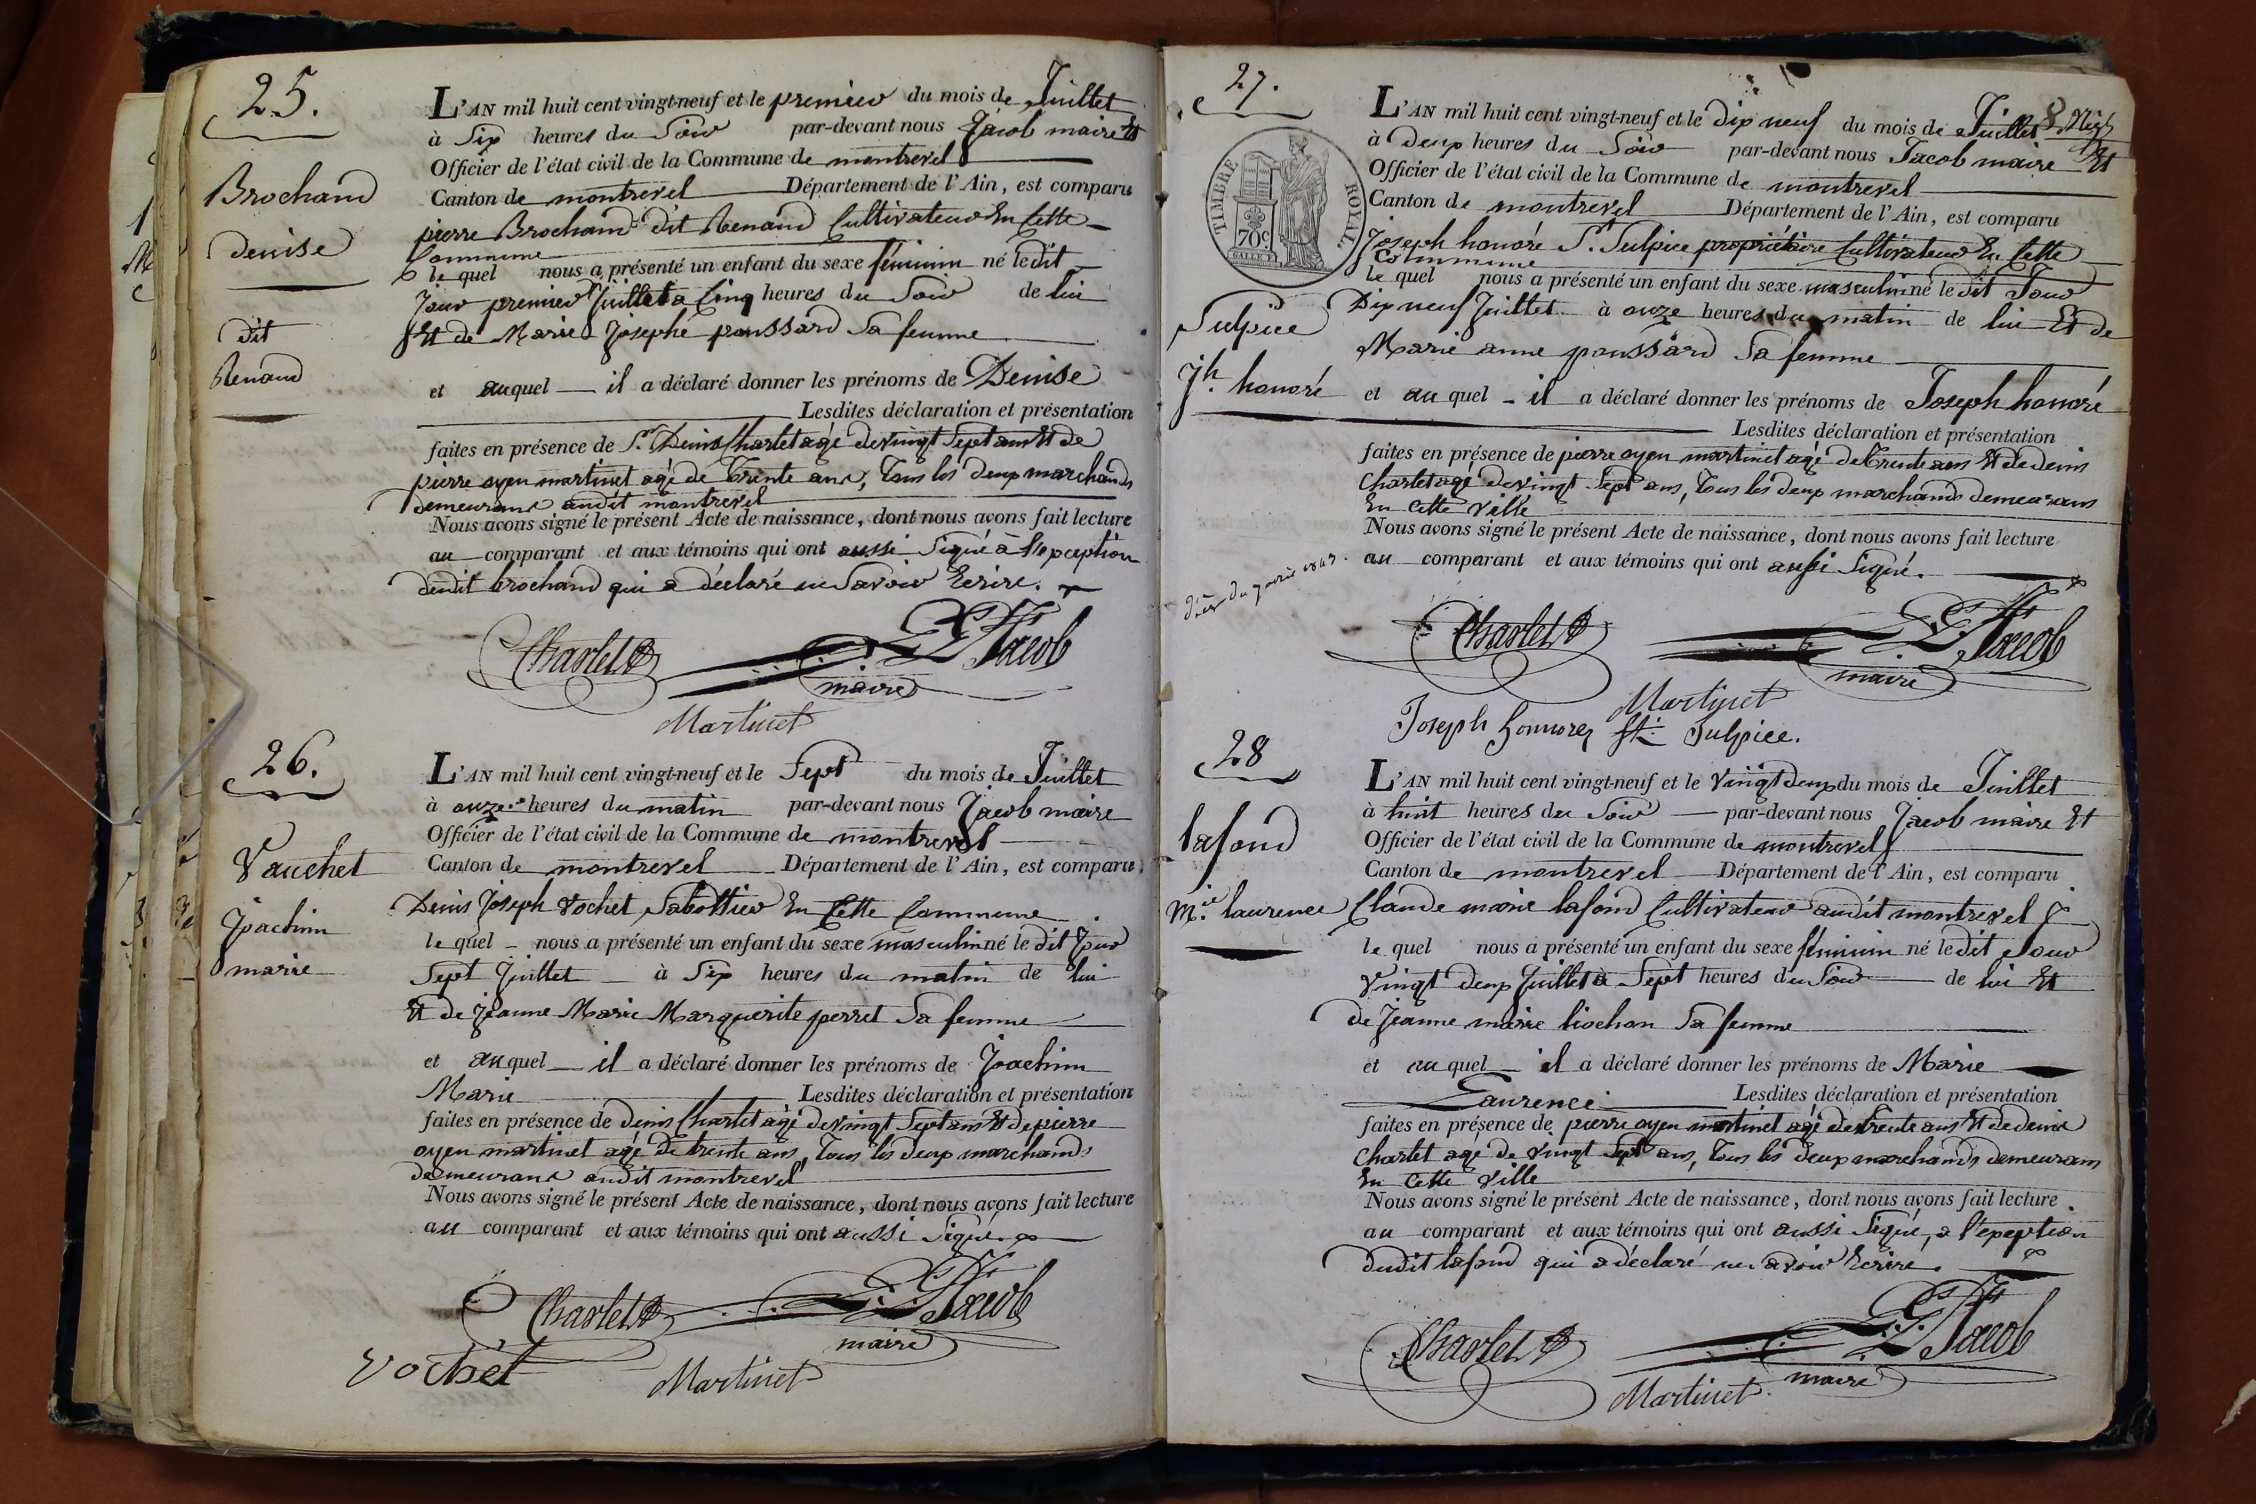 25.
Brochand
denise
dit
Renaud
L'AN mil huit cent vingt-neuf et le premier du mois de Juillet
à Six heures du Soir par-devant nous Jacob maire Et
Officier de l'état civil de la Commune de montrevel
Canton de montrevel Département de l'Ain, est comparu
pierre Brochand dit Renaud Cultivateur En Cette
Commune
le quel nous a présenté un enfant du sexe féminin né le dit
Jour premier Juillet a Cinq heures du Soir de lui
Et de Marie Josephe poussard Sa femme
et auquel il a déclaré donner les prénoms de Denise
Lesdites déclaration et présentation
faites en présence de Sr. Denis Charlet agé de vingt Sept ans Et de
pierre oyen martinet agé de trente ans, tous les deux marchands
demeurans audit montrevel
Nous avons signé le présent Acte de naissance, dont nous avons fait lecture
au comparant et aux témoins qui ont aussi Signé à l'exception
dudit brochand qui a déclaré ne Savoir Ecrire.
Charlet
Jacob
maire
Martinet
26.
Vauchet
Joachim
marie
L'AN mil huit cent vingt-neuf et le Sept du mois de Juillet
à onze heures du matin par-devant nous Jacob maire
Officier de l'état civil de la Commune de montrevel
Canton de montrevel Département de l'Ain, est comparu
Denis Joseph Vochet Sabottier En Cette Commune
le quel nous a présenté un enfant du sexe masculin né le dit Jour
Sept Juillet à Six heures du matin de lui
Et de Jeanne Marie Marguerite perret Sa femme
et auquel il a déclaré donner les prénoms de Joachim
Marie Lesdites déclaration et présentation
faites en présence de denis Charlet agé de vingt Sept ans Et de pierre
oyen martinet agé de trente ans, tous les deux marchands
demeurans audit montrevel
Nous avons signé le présent Acte de naissance, dont nous avons fait lecture
au comparant et aux témoins qui ont aussi Signé.
Charlet
Jacob
maire
Vochet
Martinet
27.
TIMBRE ROYAL
70c
Sulpice
Jh. honoré
L'AN mil huit cent vingt-neuf et le dix neuf du mois de Juillet
à deux heures du Soir par-devant nous Jacob maire Et
Officier de l'état civil de la Commune de montrevel
Canton de montrevel Département de l'Ain, est comparu
Joseph honoré St. Sulpice propriétaire Cultivateur En Cette
Commune
le quel nous a présenté un enfant du sexe masculin né le dit Jour
Dix neuf Juillet à onze heures du matin de lui Et de
Marie anne poussard Sa femme
et au quel il a déclaré donner les prénoms de Joseph honoré
Lesdites déclaration et présentation
faites en présence de pierre oyen martinet agé de trente ans Et de denis
Charlet agé de vingt Sept ans, tous les deux marchands demeurans
En Cette Ville
Nous avons signé le présent Acte de naissance, dont nous avons fait lecture
au comparant et aux témoins qui ont aussi Signé.
Charlet
Jacob
maire
Martinet
Joseph honnorez St. Sulpice.
28
lafond
Mie. laurence
L'AN mil huit cent vingt-neuf et le vingt deux du mois de Juillet
à huit heures du Soir par-devant nous Jacob maire Et
Officier de l'état civil de la Commune de montrevel
Canton de montrevel Département de l'Ain, est comparu
Claude marie lafond Cultivateur audit montrevel
le quel nous a présenté un enfant du sexe féminin né le dit Jour
Vingt deux Juillet à Sept heures du Soir de lui Et
de Jeanne marie liochon Sa femme
et au quel il a déclaré donner les prénoms de Marie
Laurence Lesdites déclaration et présentation
faites en présence de pierre oyen martinet agé de trente ans Et de denis
Charlet agé de vingt Sept ans, tous les deux marchands demeurans
En Cette Ville
Nous avons signé le présent Acte de naissance, dont nous avons fait lecture
au comparant et aux témoins qui ont aussi Signé, a l'exeption
dudit lafond qui a déclaré ne avoir Ecrire.
Charlet
Jacob
maire
Martinet